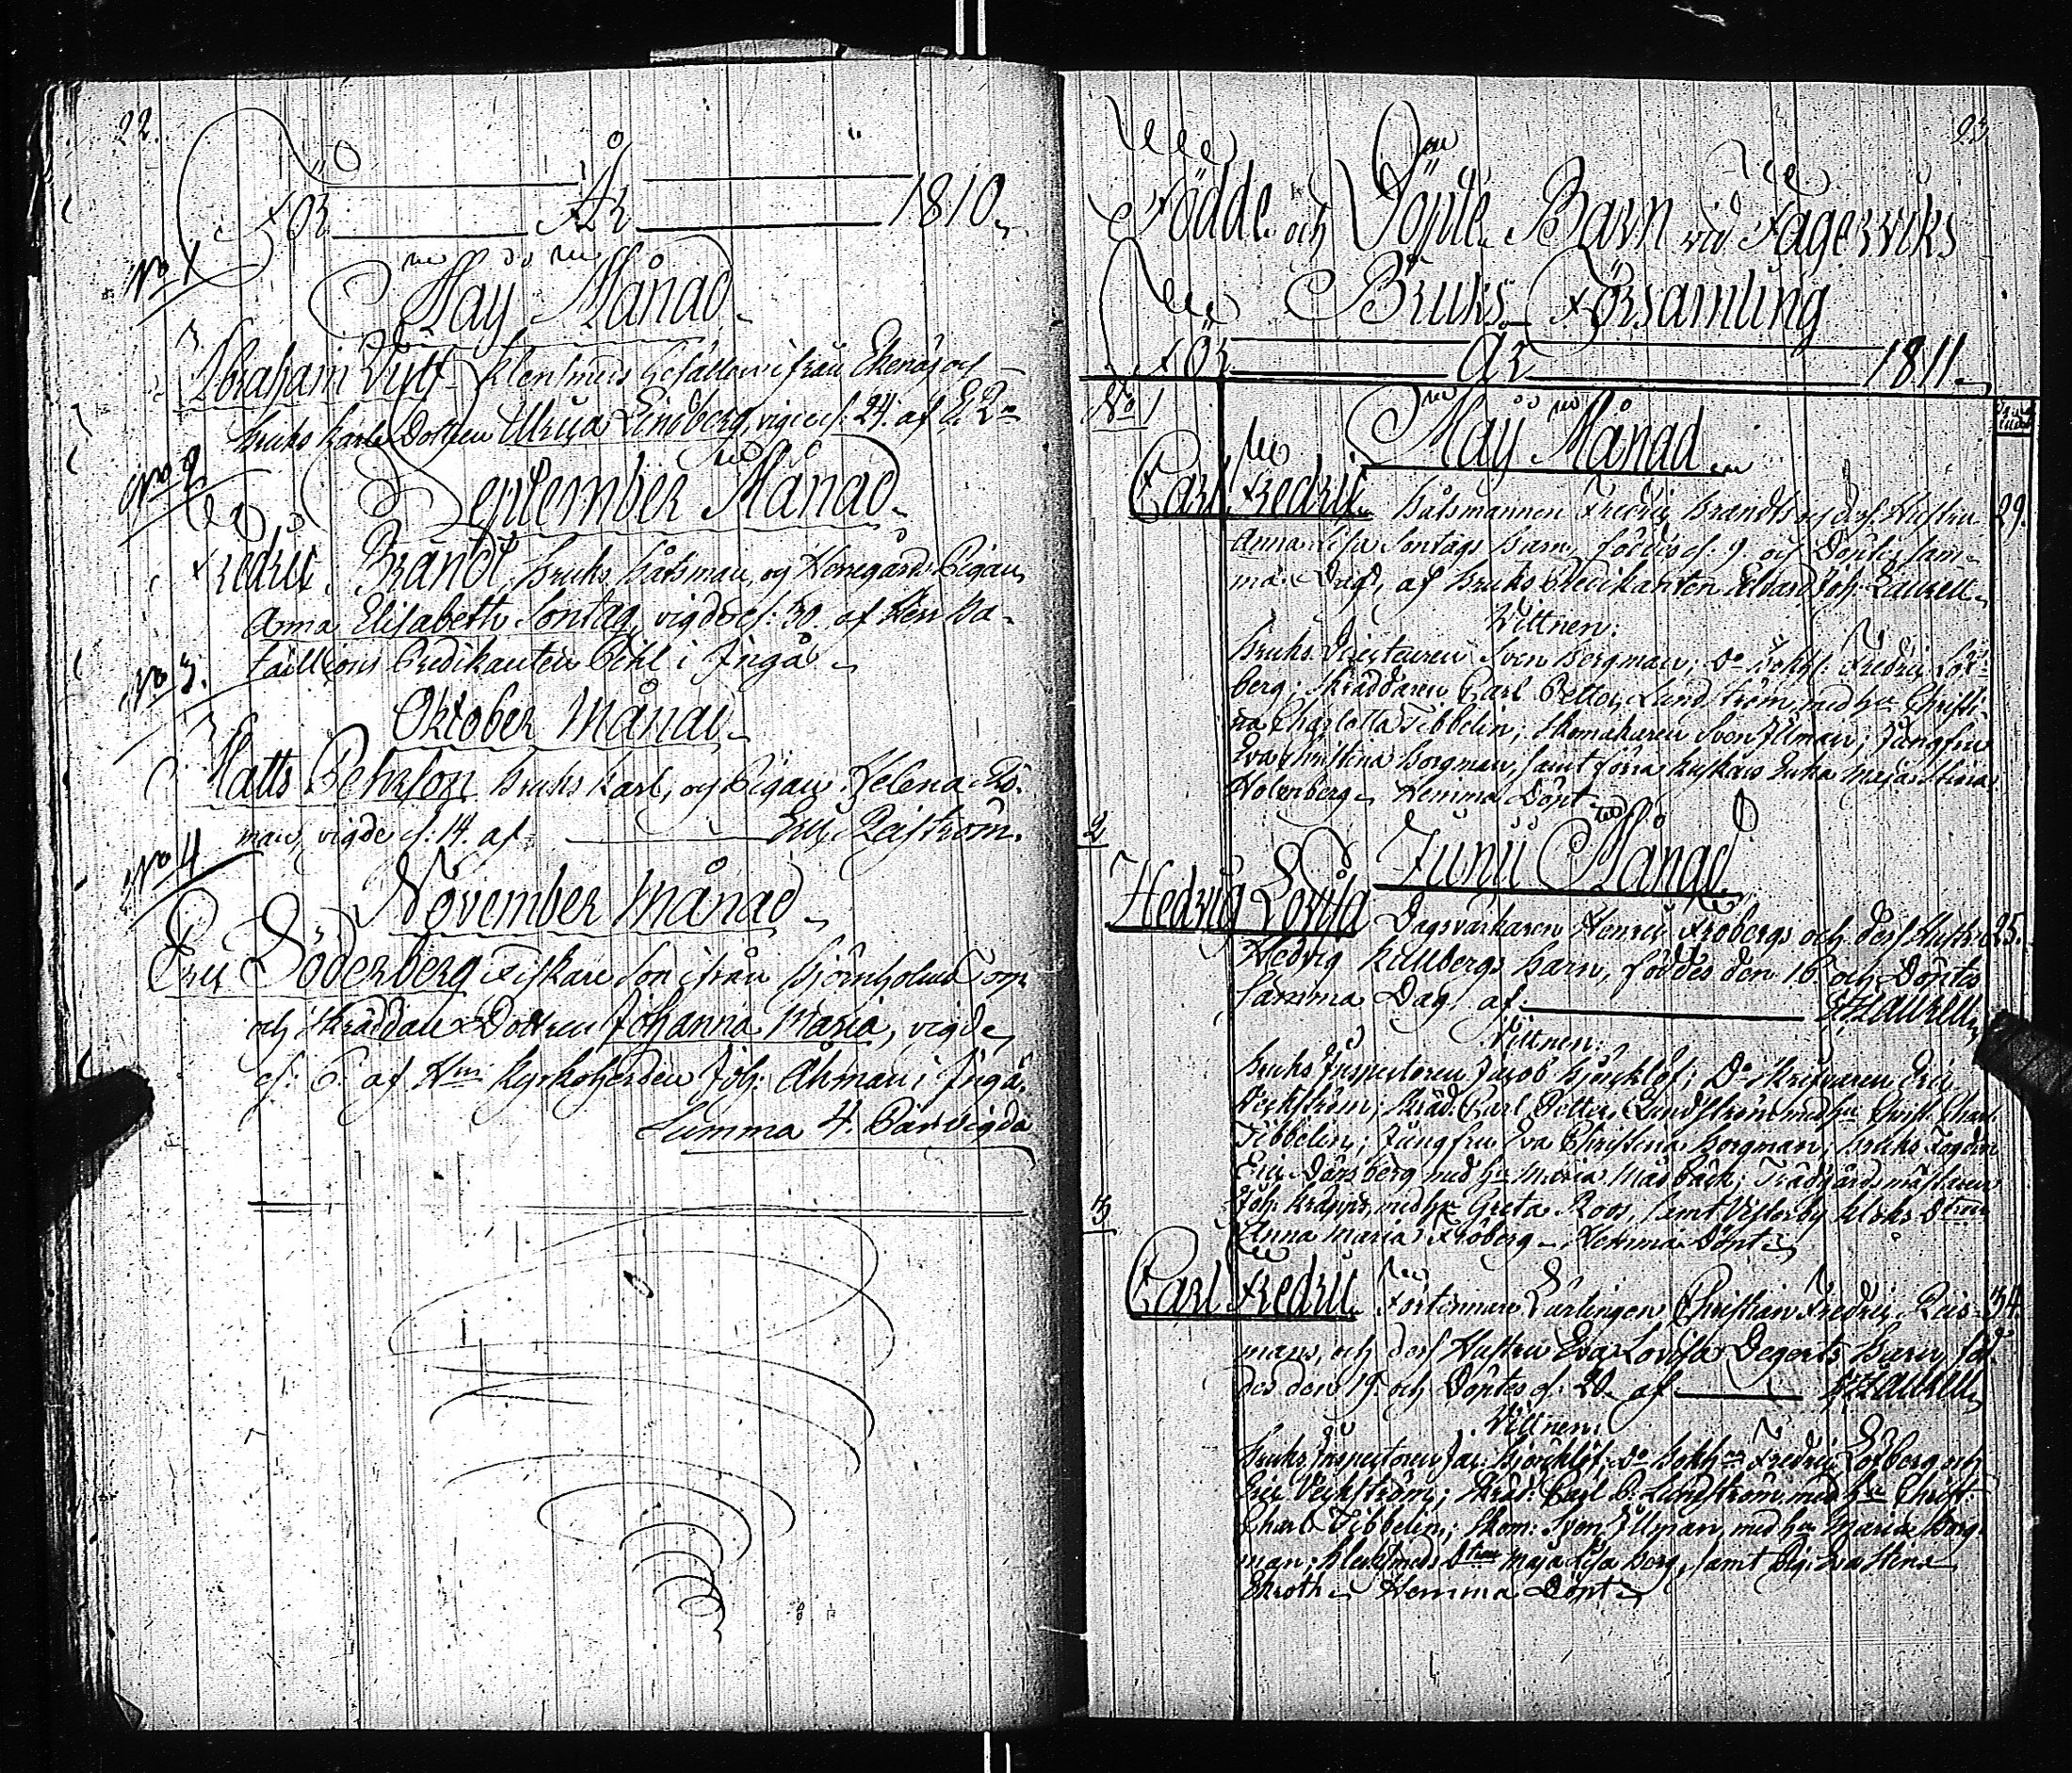 22.
För År 1810.
No 1
May Månad
Abraham klensmeds Gesällen ifrån Ekenäs och
Bruks karls Dottren Ulrica Lindberg, vigde d. 24. af
No 2
September Månad
Fredric Brandt, Bruks Båtsman, och Herregårds Pigan
Anna Elisabeth Sontag, vigde d: 30. af Herr Ba-
taillions Predikanten Pihl i Ingå
No 3.
Oktober Månad
Matts Pehrson Bruks karl, och Pigan Helena
man, vigde d: 14. af Reiström.
No 4
November Månad
Eric Söderberg Fiskare Son ifrån Björnholms Torp
och Skräddare Dottren Johanna Maria, vigde
d: 6. af Hrr Kyrkoherden Joh: Åhman i Ingå.
Summa 4. Par vigda
23
Födde och Döpte Barn vid Fagerviks
Bruks Församling
För År 1811.
No 1
May Månad
Carl Fredric Båtsmannen Fredric Brandts och dess Hustru 29.
Anna Lisa Sontags Barn, föddes d: 9. och Döptes sam-
ma Dag, af Bruks Predikanten Joh: Laurell
Vittnen:
Bruks Sven Bergman; Do Bokh: Fredric Löf-
berg; Skräddaren Carl Petter Lundström, med hu Christi-
na Charlotta Tibbelin; Skomakaren Sven Illman; Jungfru
Eva Christina Borgman, samt förra kuskens Enka Maja Stina
Holmberg. Hemma Döpt
2
Junii Månad
Hedvig Lovisa Dagsvärkaren Henric Frobergs och dess Hustru 25.
Hedvig Kullbergs Barn, föddes den 16. och Döptes
samma Dag, af Laurell
Vittnen:
Bruks Inspectoren Jacob Björklöf; Do Skrifvaren Eric
Veckström; Skräd: Carl Petter Lundström med hu Christ: Charl:
Tibbelin; Jungfru Eva Christina Borgman; Bruks Fogden
Eric Dönsberg med hu Maria Masbäck; Trädgårdsmästaren
Joh: med hu Greta Roos, samt Vesterby
Anna Maria Fröberg. Hemma Döpt
3
Carl Fredric Förtennare Lärlingen Christian Fredric Reis- 34.
mans, och dess Hustru Eva Lovisa Degerts Barn föd-
des den 19. och Döptes d: 20. af Laurell
Vittnen:
Bruks Inspectoren Jac: Björklöf; Do Bokh: Fredric Löfberg och
Eric Veckström; Skräd: Carl P. Lundström med hu Christ:
Charl: Tibbelin; Skom: Sven Illman, med hu Maria Borg-
man; Klensmeds Maja Lisa Borg, samt Pig: Christina
Ekroth. Hemma Döpt